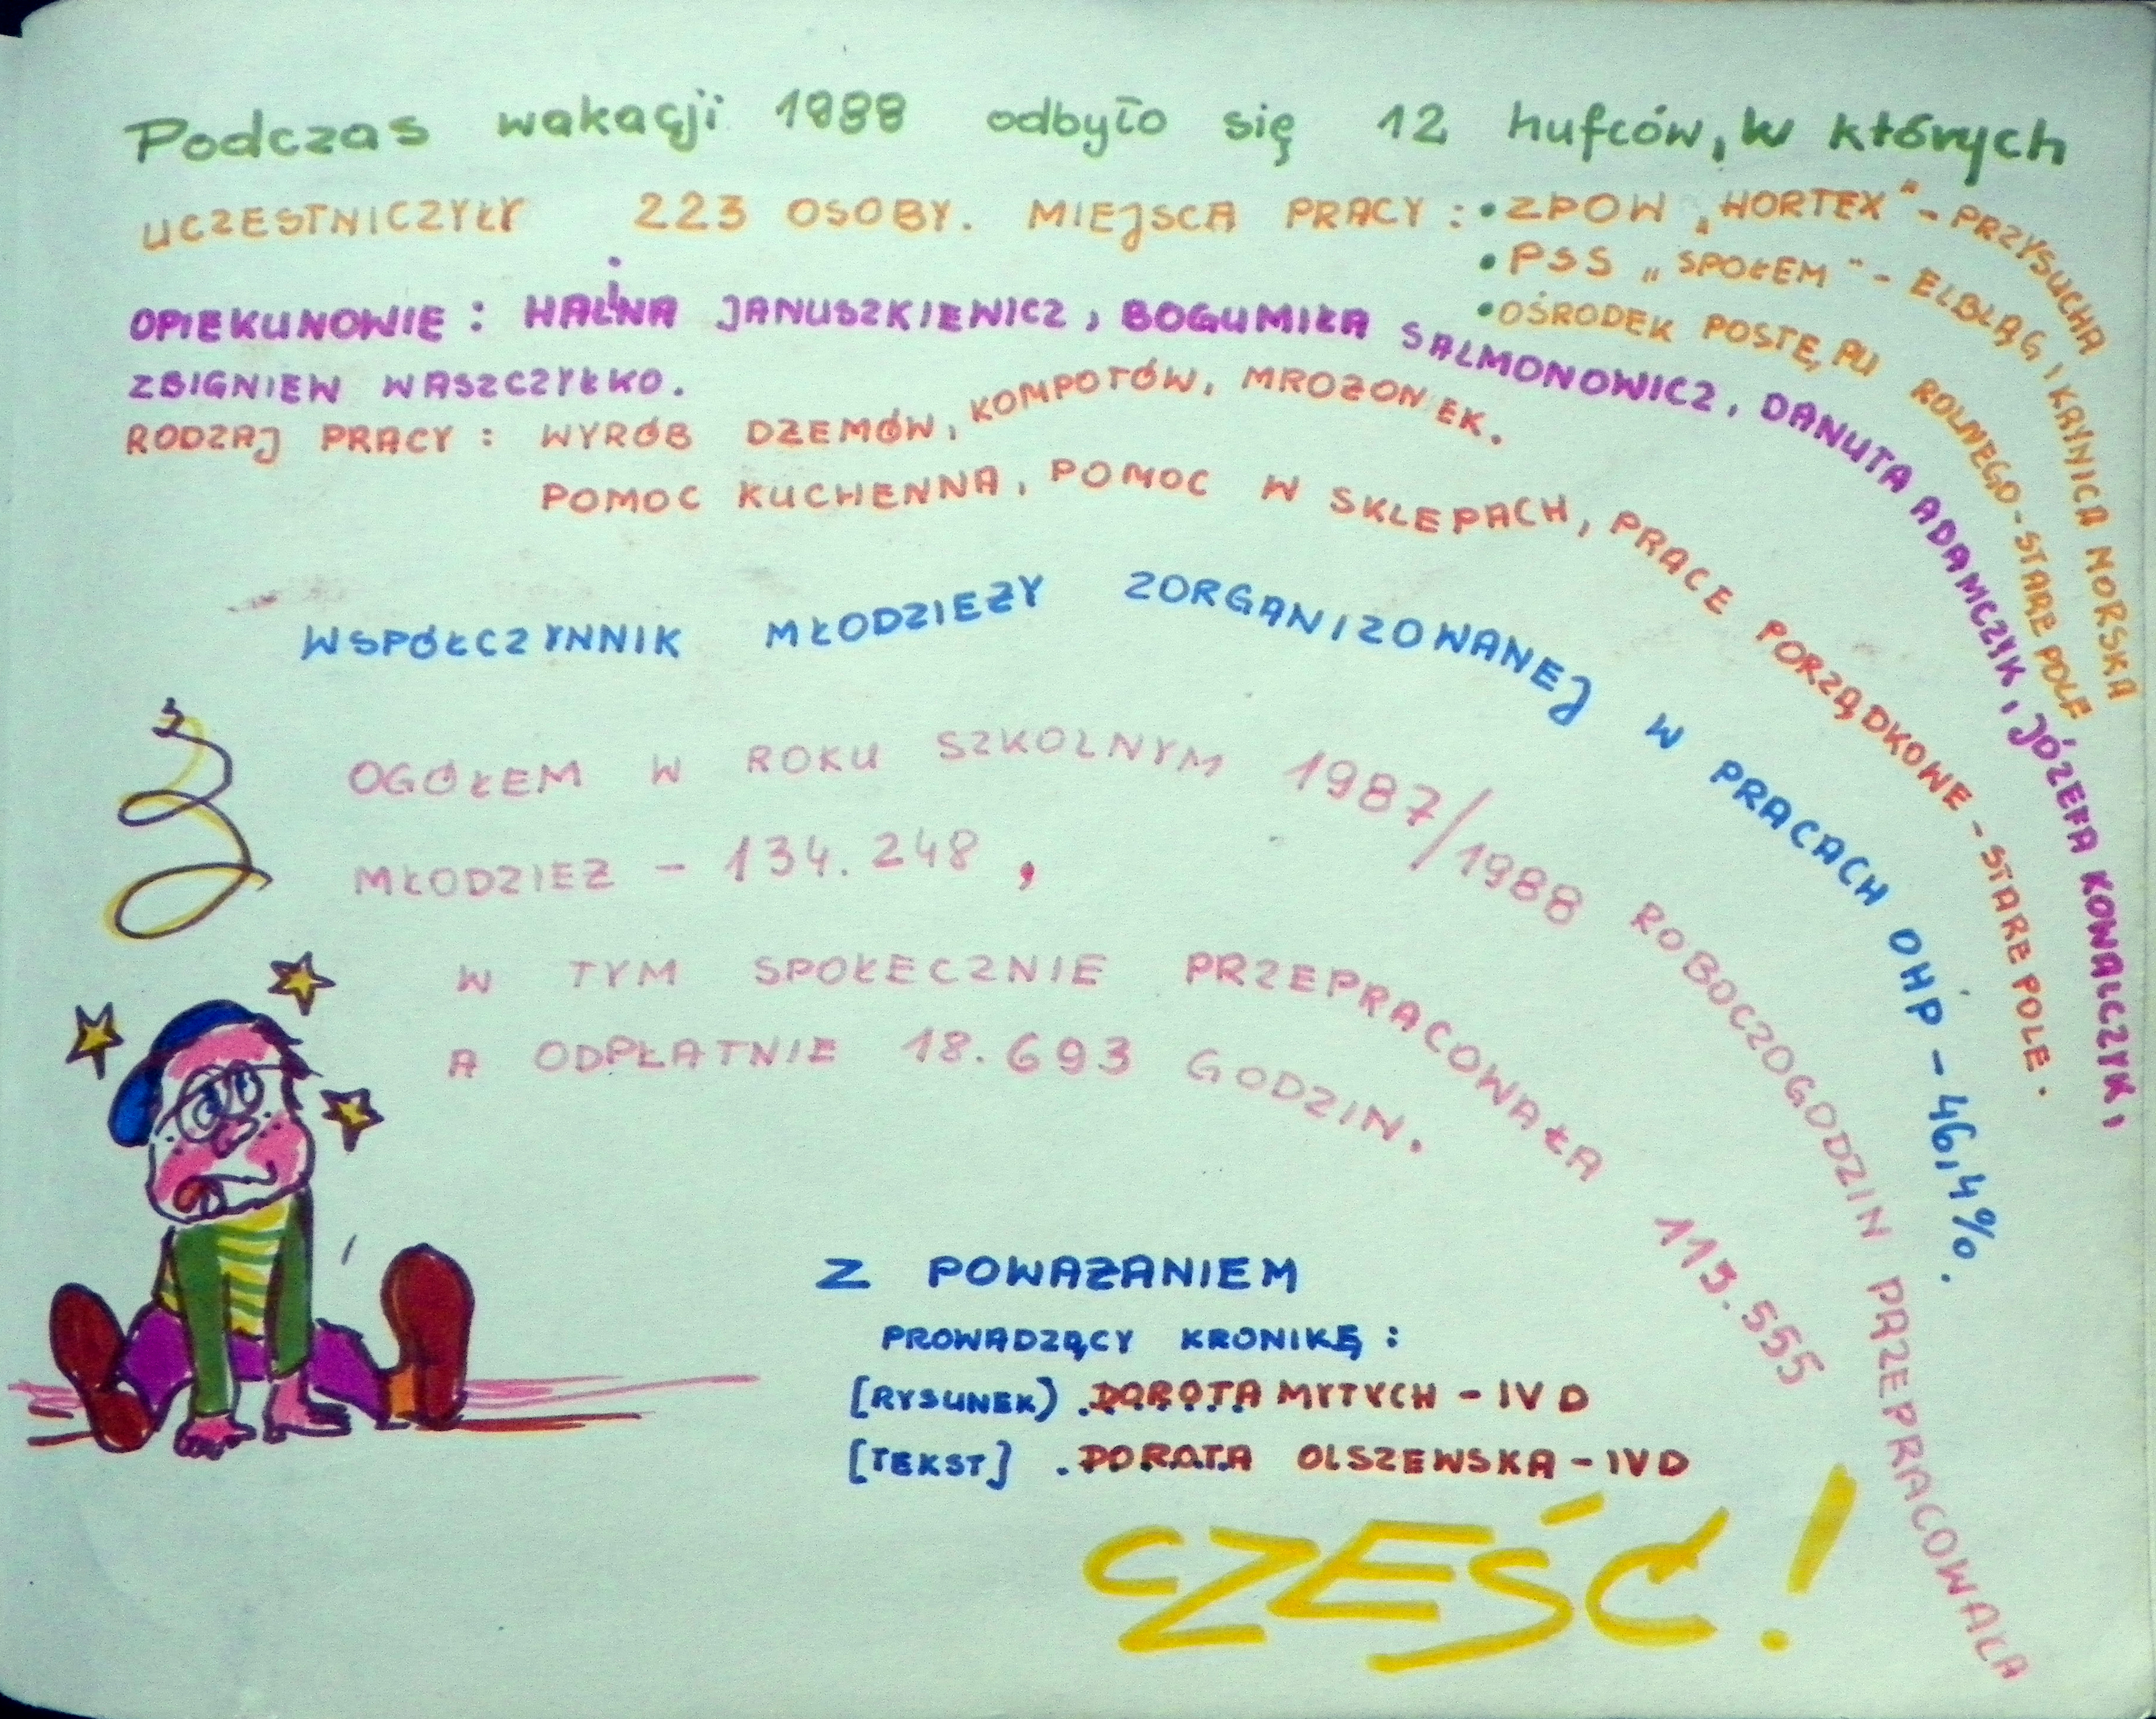 Podczas wakacji 1988 odbyło się 12 hufców, w których
UCZESTNICZYŁY 223 OSOBY. MIEJSCA PRACY : • ZPOW „HORTEX" - PRZYSUCHA
• PSS „SPOŁEM" - ELBLĄG I KRYNICA MORSKA
• OŚRODEK POSTĘPU ROLNEGO - STARE POLE
OPIEKUNOWIE : HALINA JANUSZKIEWICZ, BOGUMIŁA SALMONOWICZ, DANUTA ADAMCZYK, JÓZEFA KOWALCZYK,
ZBIGNIEW WASZCZYŁKO.
RODZAJ PRACY : WYRÓB DŻEMÓW, KOMPOTÓW, MROŻONEK.
POMOC KUCHENNA, POMOC W SKLEPACH, PRACE PORZĄDKOWE - STARE POLE.
WSPÓŁCZYNNIK MŁODZIEŻY ZORGANIZOWANEJ W PRACACH OHP - 46,4%.
OGÓŁEM W ROKU SZKOLNYM 1987/1988 ROBOCZOGODZIN PRZEPRACOWAŁA
MŁODZIEŻ - 134.248,
W TYM SPOŁECZNIE PRZEPRACOWAŁA 115.555
A ODPŁATNIE 18.693 GODZIN.
Z POWAŻANIEM
PROWADZĄCY KRONIKĘ :
[RYSUNEK) . DOROTA MYTYCH - IV D
[TEKST] . DOROTA OLSZEWSKA - IV D
CZEŚĆ!